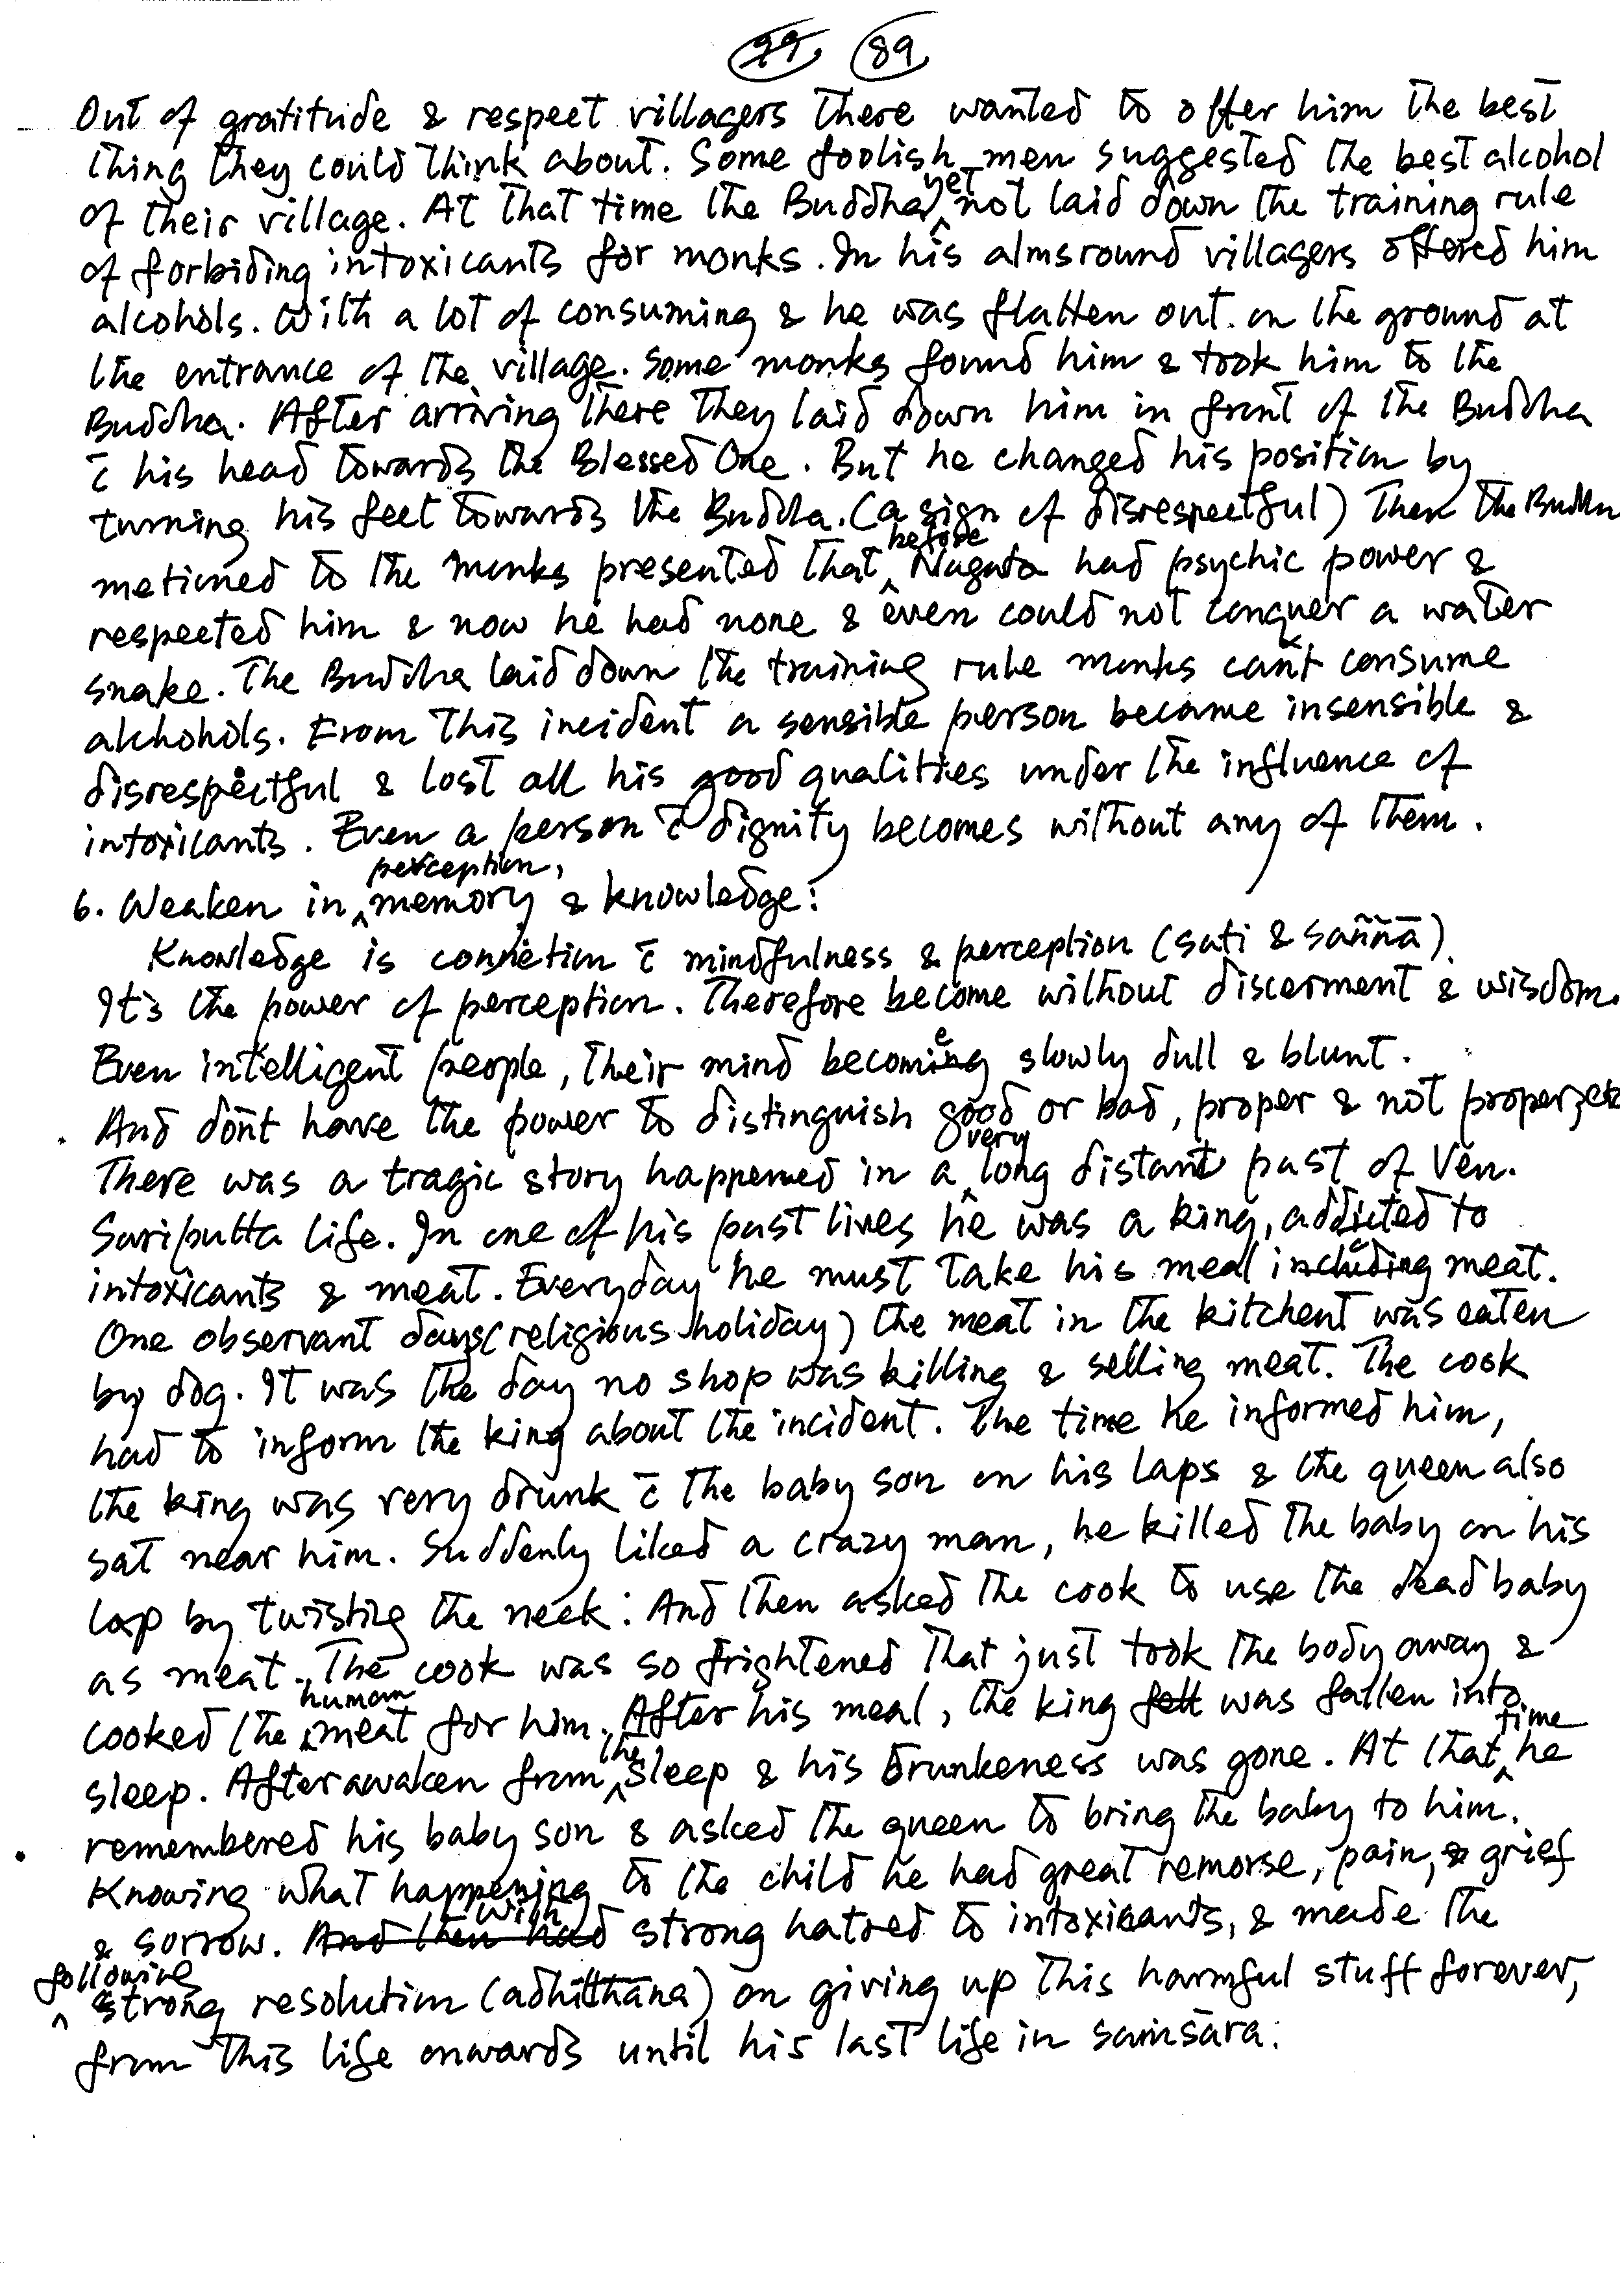 89
Out of gratitude & respect villagers there wanted to offer him the best
thing they could think about. Some foolish men suggested the best alcohol
of their village. At that time the Buddha yet not laid down the training rule
of forbiding intoxicants for monks. In his almsround villagers offered him
alcohols. With a lot of consuming & he was flatten out on the ground at
the entrance of the village. Some monks found him & took him to the
Buddha. After arriving there they laid down him in front of the Buddha
c̄ his head towards the Blessed One. But he changed his position by
turning his feet towards the Buddha. (a sign of disrespectful) Then the Buddha
metioned to the monks presented that before Nagata had psychic power &
respected him & now he had none & even could not conquer a water
snake. The Buddha laid down the training rule monks can't consume
alchohols. From this incident a sensible person became insensible &
disrespectful & lost all his good qualities under the influence of
intoxicants. Even a person c̄ dignity becomes without any of them.
6. Weaken in perception, memory & knowledge:
Knowledge is connection c̄ mindfulness & perception (sati & saññā).
It's the power of perception. Therefore become without discernment & wisdom.
Even intelligent people, their mind become slowly dull & blunt.
And don't have the power to distinguish good or bad, proper & not proper, etc
There was a tragic story happened in a very long distant past of Ven.
Sariputta life. In one of his past lives he was a king, addicted to
intoxicants & meat. Everyday he must take his meal including meat.
One observant days (religious holiday) the meat in the kitchent was eaten
by dog. It was the day no shop was killing & selling meat. The cook
had to inform the king about the incident. The time he informed him,
the king was very drunk c̄ the baby son on his laps & the queen also
sat near him. Suddenly liked a crazy man, he killed the baby on his
lap by twisting the neck. And then asked the cook to use the dead baby
as meat. The cook was so frightened that just took the body away &
cooked the human meat for him. After his meal, the king was fallen into
sleep. After awaken from the sleep & his drunkeness was gone. At that time he
remembered his baby son & asked the queen to bring the baby to him.
Knowing what happening to the child he had great remorse, pain, grief
& sorrow. With strong hatred to intoxicants, & made the
following strong resolution (adhiṭṭhāna) on giving up this harmful stuff forever,
from this life onwards until his last life in saṁsāra: